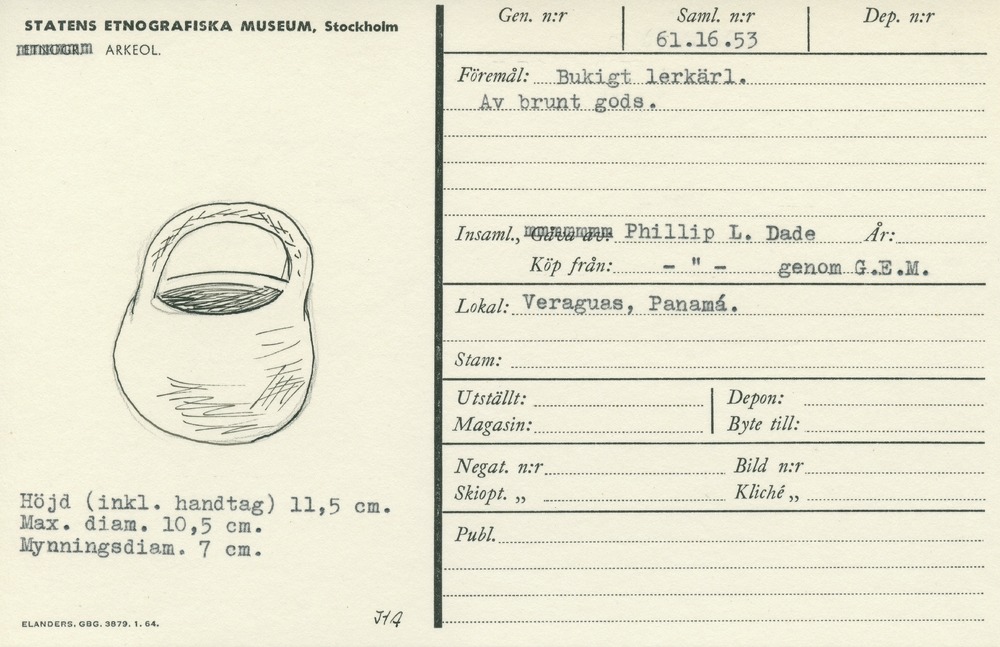 STATENS ETNOGRAFISKA MUSEUM, Stockholm
ETNOGR. ARKEOL.
Höjd (inkl. handtag) 11,5 cm.
Max. diam. 10,5 cm.
Mynningsdiam. 7 cm.
ELANDERS. GBG. 3879. 1. 64.
Gen. n:r Saml. n:r Dep. n:r
61.16.53
Föremål: Bukigt lerkärl.
Av brunt gods.
Insaml., Gåva av: Phillip L. Dade År:
Köp från: - " - genom G.E.M.
Lokal: Veraguas, Panamá.
Stam:
Utställt: Depon:
Magasin: Byte till:
Negat. n:r Bild n:r
Skiopt. „ Kliché „
Publ.